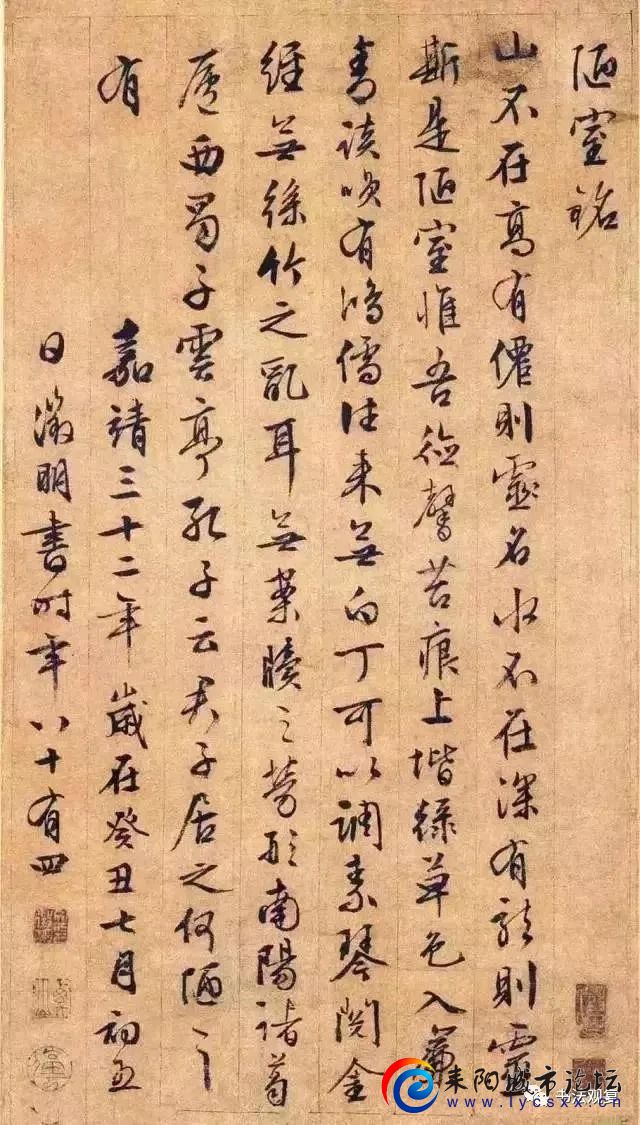 陋室銘
山不在高有僊則靈名水不在深有龍則靈
斯是陋室惟吾德馨苔痕上堦綠草色入簾
青談咲有鴻儒往来無白丁可以調素琴閱金
經無絲竹之亂耳無案牘之勞形南陽諸葛
廬西蜀子雲亭孔子云君子居之何陋之
有
嘉靖三十二年歲在癸丑七月初五
日徵明書時年八十有四
耒阳城市论坛
www.lycsxx.cn